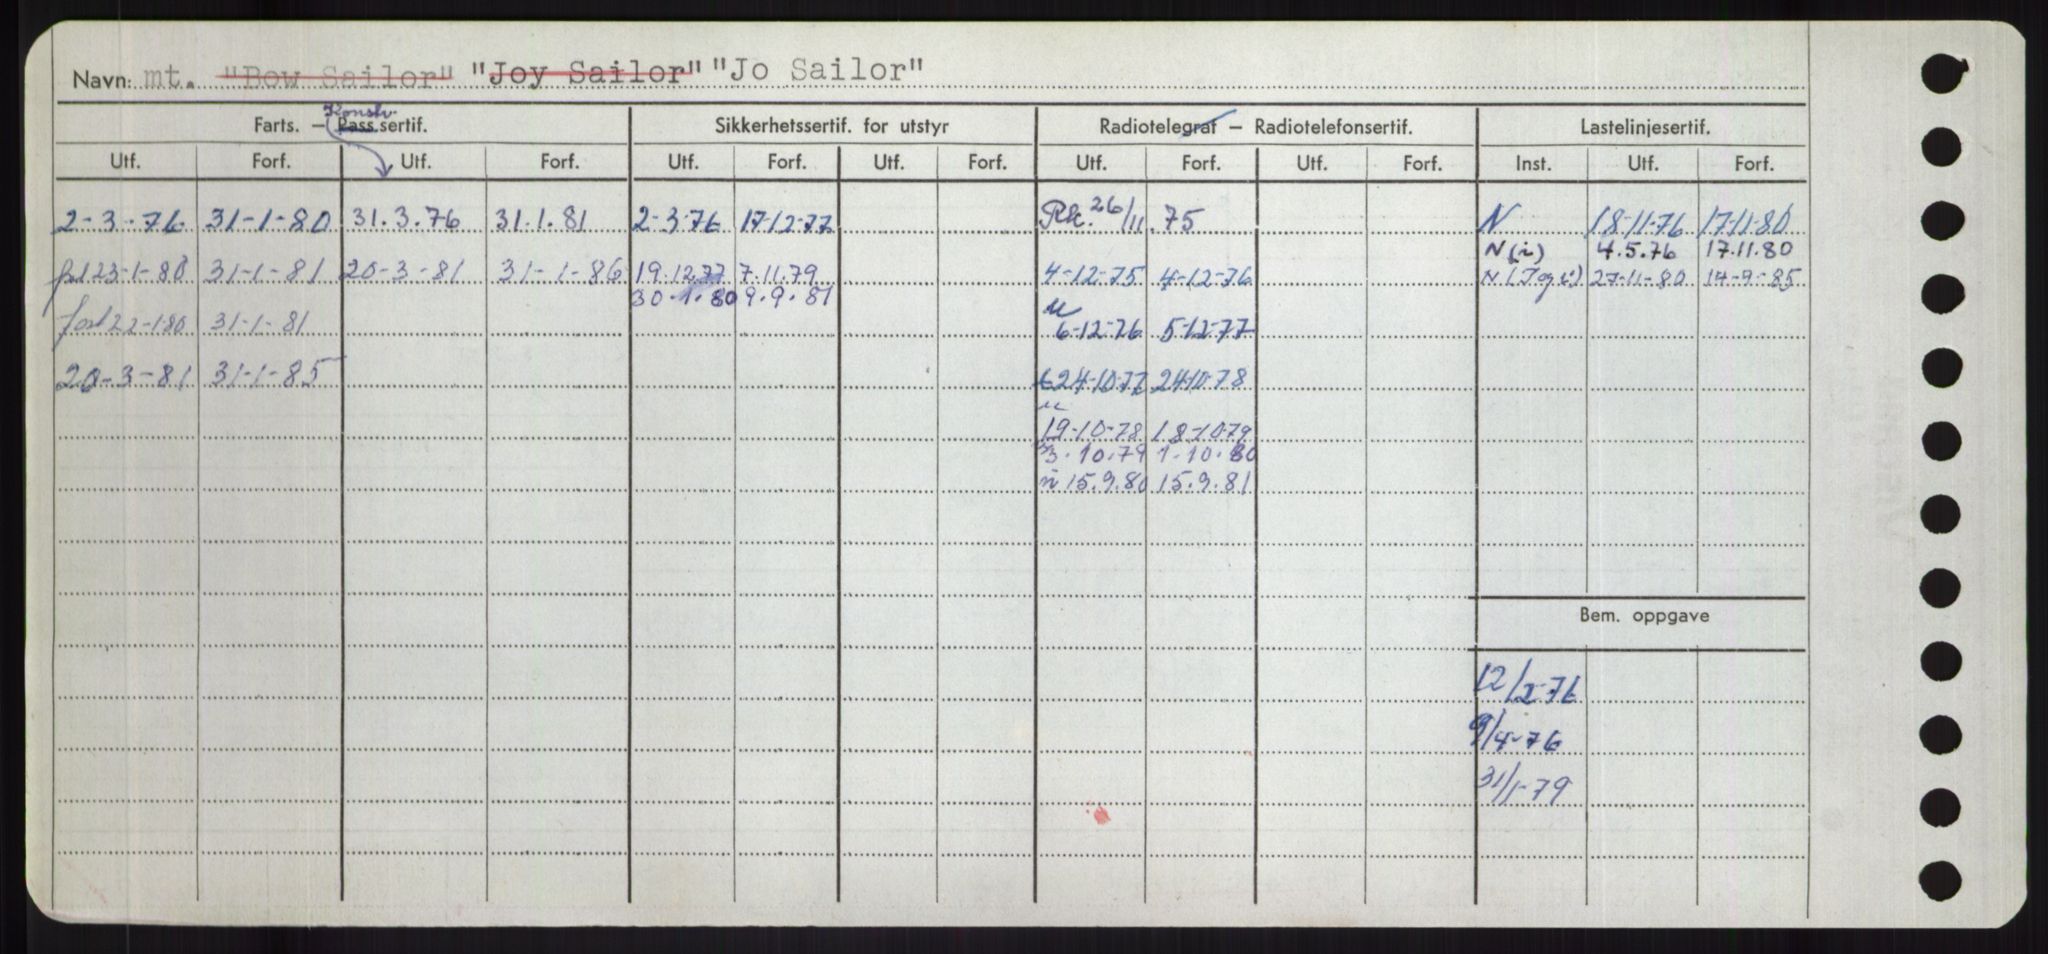 Navn: mt. "Bow Sailor" "Joy Sailor" "Jo Sailor"
Konstr.
Farts. – Pass.sertif. Sikkerhetssertif. for utstyr Radiotelegraf – Radiotelefonsertif. Lastelinjesertif.
Utf. Forf. Utf. Forf. Utf. Forf. Utf. Forf. Utf. Forf. Utf. Forf. Inst. Utf. Forf.
2-3-76 31-1-80 31.3.76 31.1.81 2-3-76 17-12-77 Rk. 26/11.75 N 18-11-76 17-11-80
N(i) 4.5.76 17.11.80
23-1-80 31-1-81 20-3-81 31-1-86 19.12.77 7.11.79 4-12-75 4-12-76 N(T og i) 27-11-80 14-9-85
30.1.80 9.9.81
22-1-80 31-1-81 6-12-76 5-12-77
20-3-81 31-1-85 24-10-77 24-10-78
19-10-78 18-10-79
3.10.79 1-10.80
15.9.80 15.9.81
Bem. oppgave
12/2-76
9/4-76
31/1-79